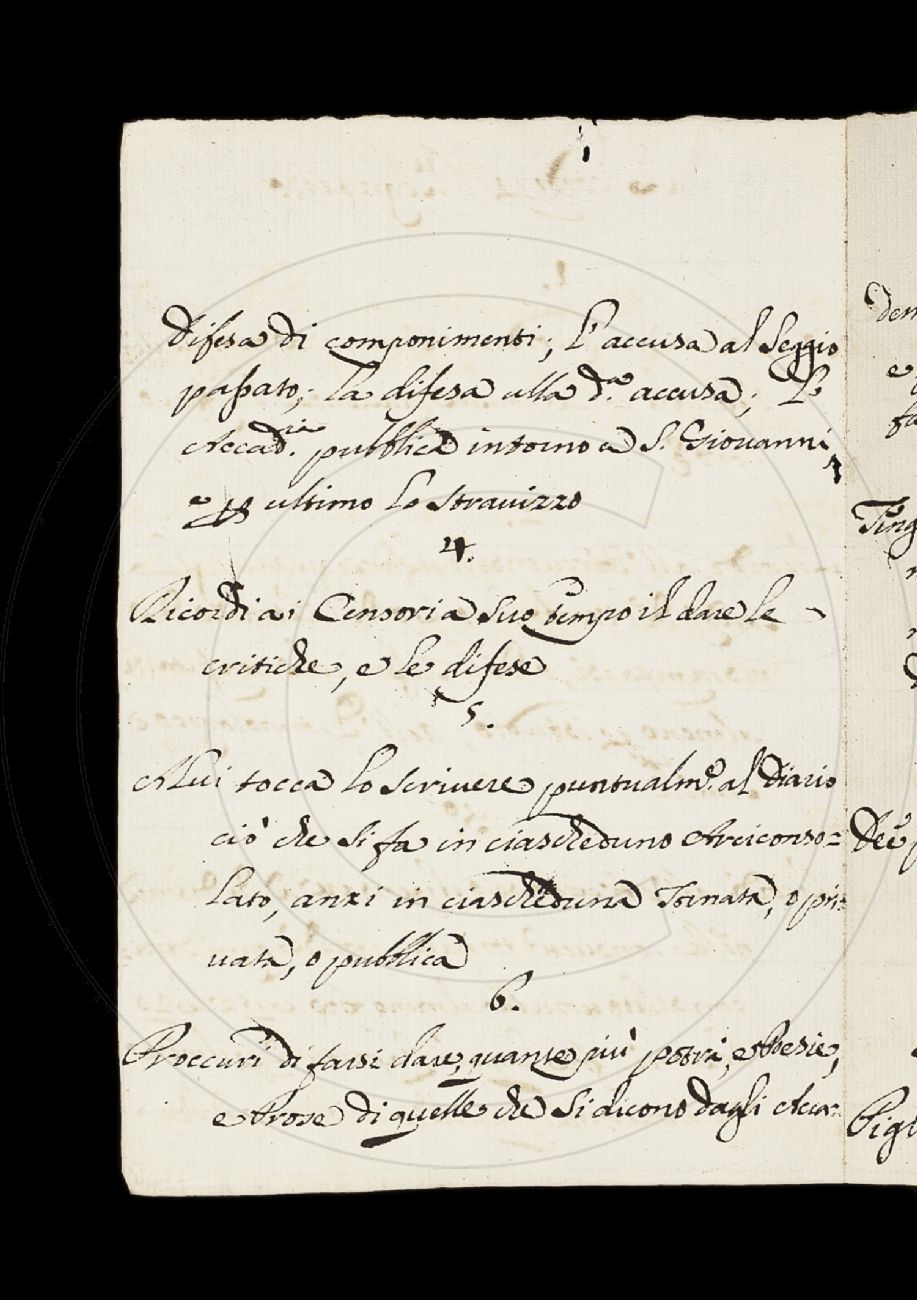 difesa di componimenti; l'accusa al Seggio
passato; la difesa alla d.ª accusa; l'
Accad.ia pubblica intorno a S. Giovanni,
e ultimo lo Stravizzo
4.
Ricordi ai Censori a suo tempo il dare le
critiche, e le difese
5.
A lui tocca lo scrivere puntualm.e al Diario
ciò che si fa in ciascheduno Arciconso=
lato, anzi in ciascheduna Tornata, o pri=
vata, o pubblica
6.
Proccuri di farsi dare, quante più potrà, e Poesie,
e Prose di quelle che si dicono dagli Acca=
dem
e
fa
Ting
Dee
Pigl